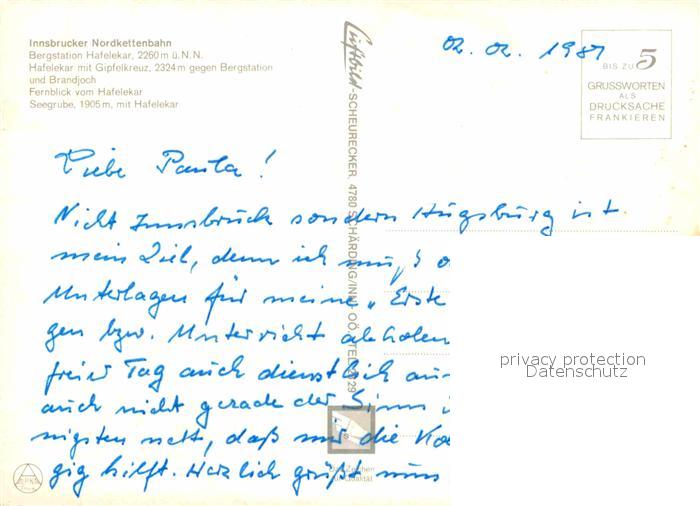 Innsbrucker Nordkettenbahn
Bergstation Hafelekar, 2260 m ü. N. N.
Hafelekar mit Gipfelkreuz, 2324 m gegen Bergstation
und Brandjoch
Fernblick vom Hafelekar
Seegrube, 1905 m, mit Hafelekar
Luftbild-SCHEURECKER, 4780 SCHÄRDING/INN, OÖ, TEL.
02. 02. 1981
BIS ZU 5
GRUSSWORTEN
ALS
DRUCKSACHE
FRANKIEREN
Liebe Paula!
Nicht Innsbruck sondern Augsburg ist
mein Ziel, denn ich muß
Unterlagen für meine „Erste
gen bzw. Unterricht abholen
freier Tag auch dienstlich
auch nicht gerade der Sinn
nigsten nett, daß mir die
gig hilft. Herzlich grüßt
privacy protection
Datenschutz